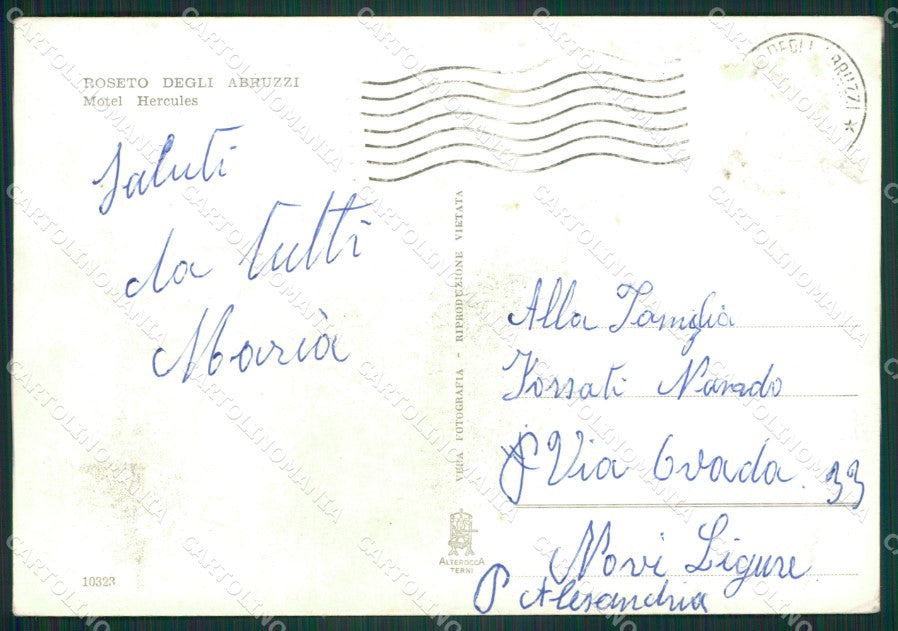 ROSETO DEGLI ABRUZZI
Motel Hercules
Saluti
da tutti
Maria
10323
VERA FOTOGRAFIA - RIPRODUZIONE VIETATA
ALTEROCCA
TERNI
DEGLI ABRUZZI *
Alla Famiglia
Via Ovada 33
Novi Ligure
P Alesandria
CARTOLINOMANIA